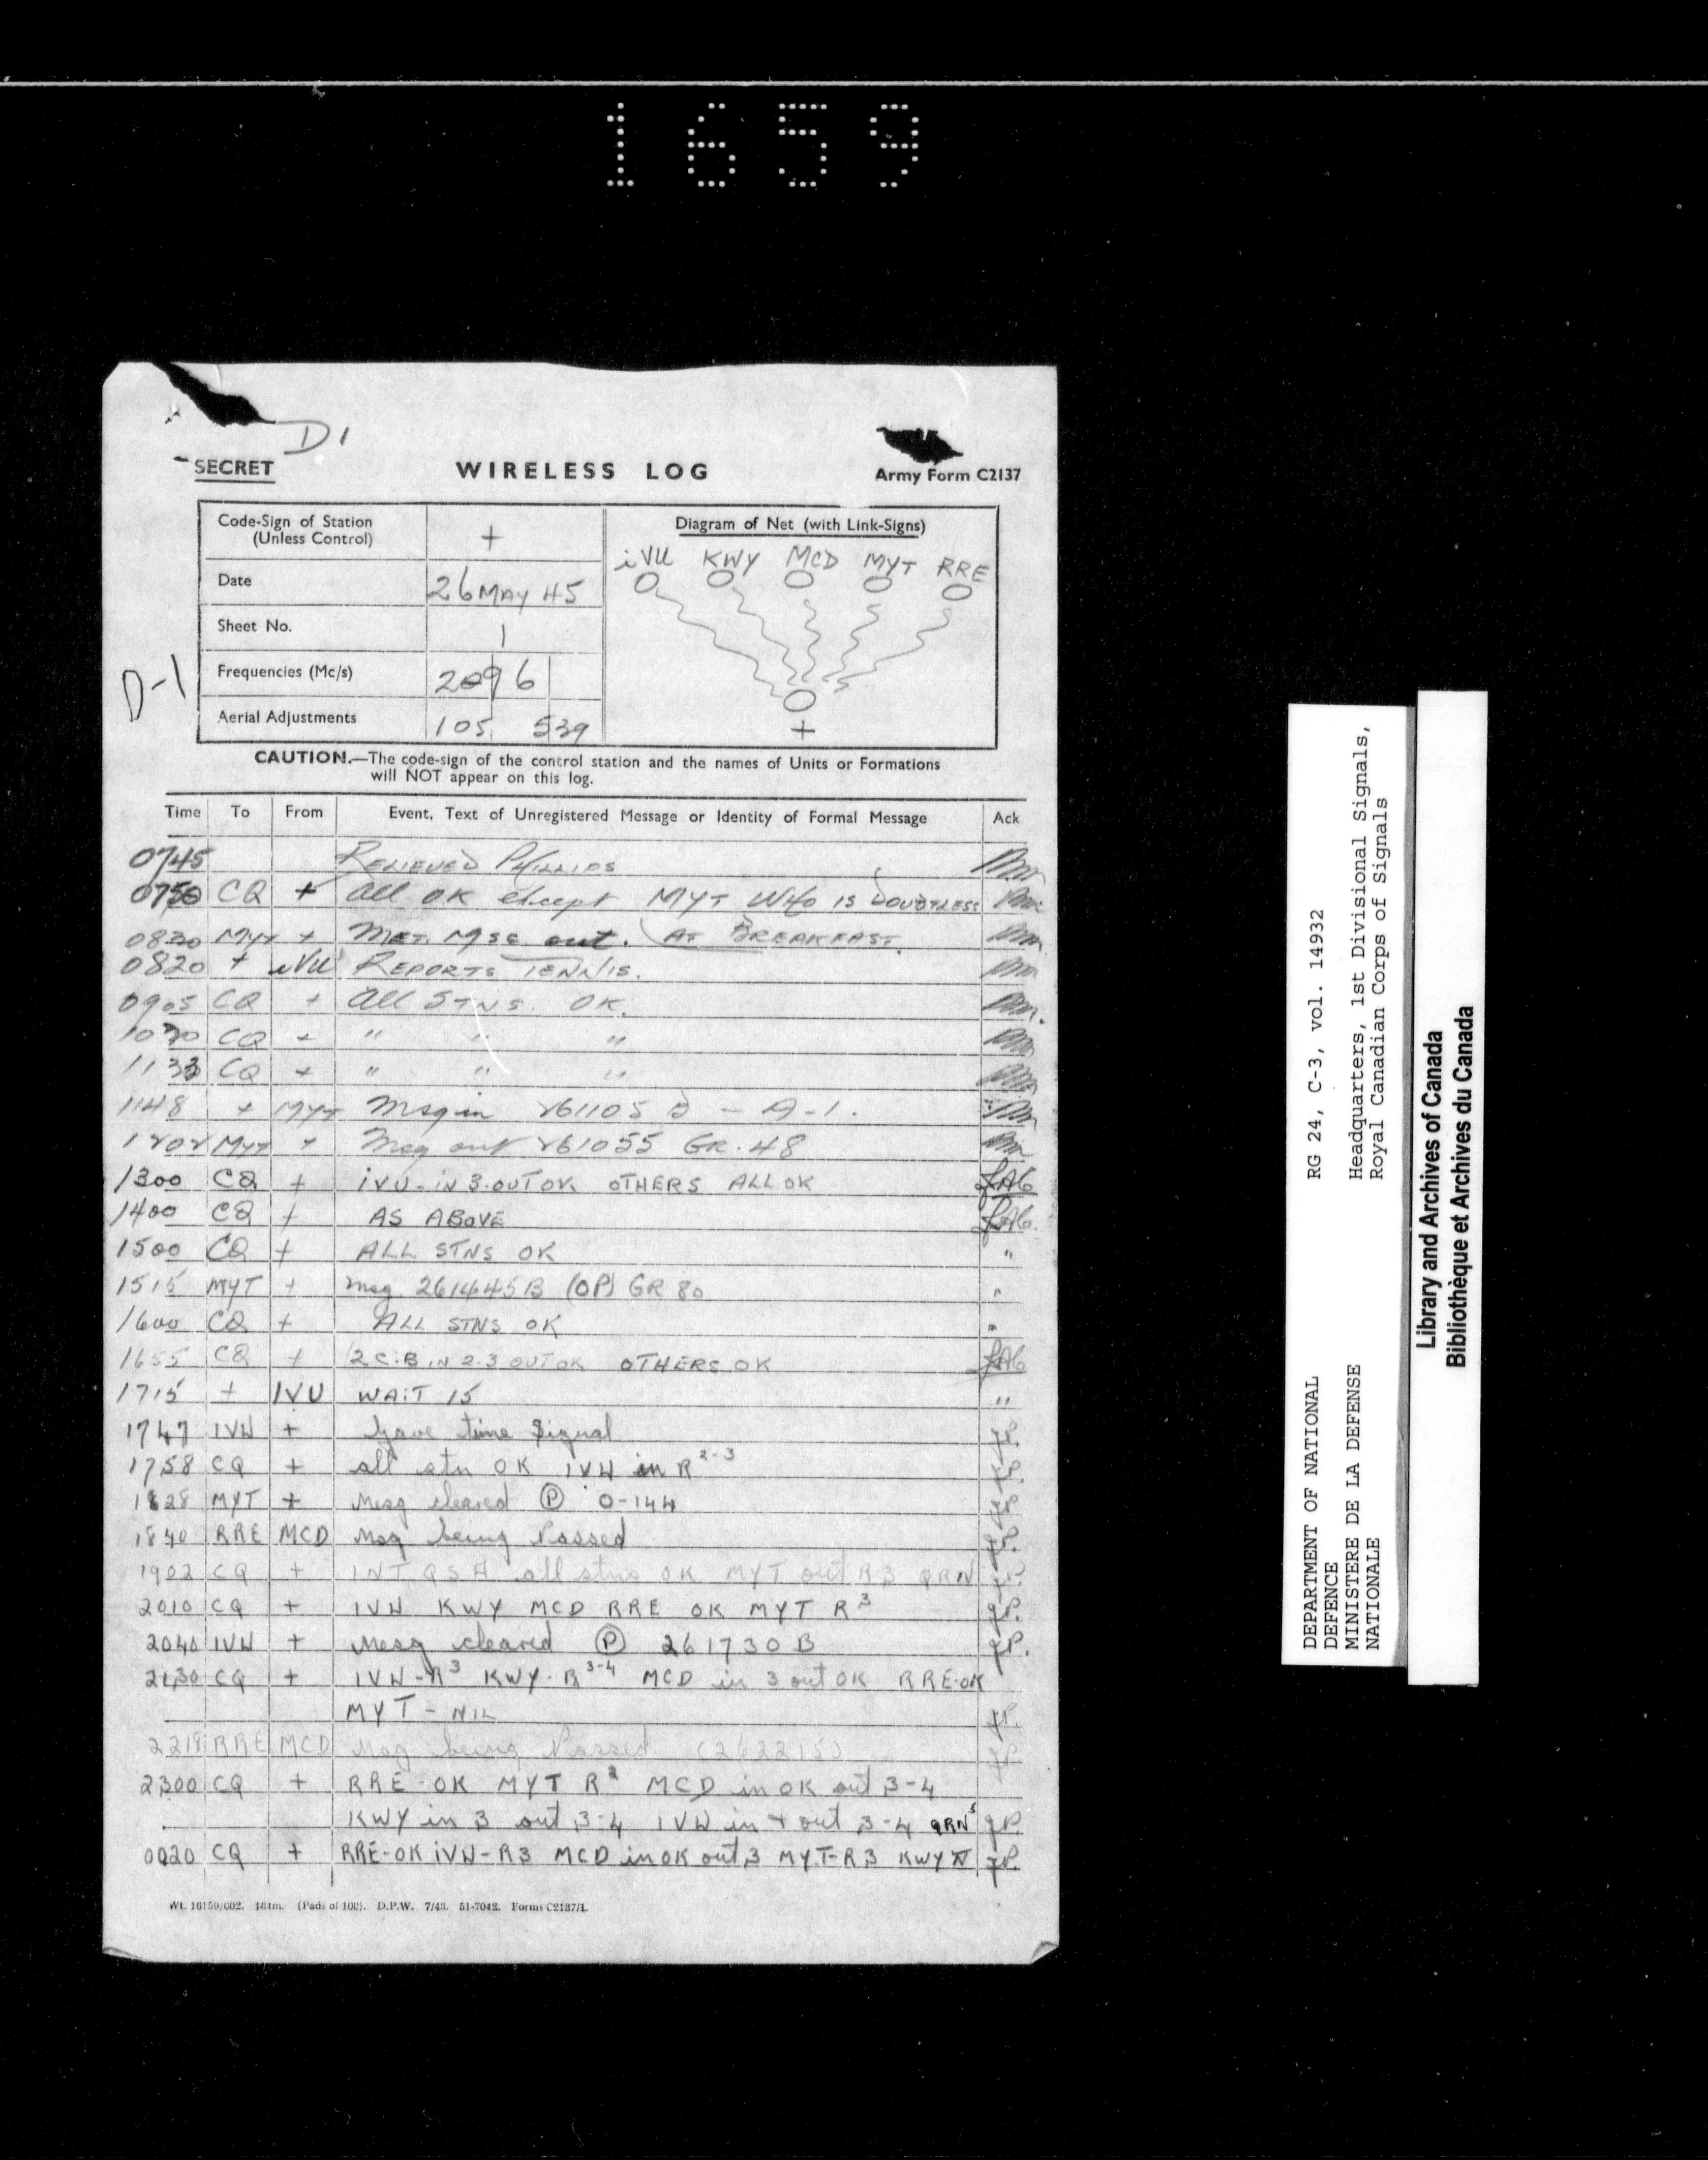 1659
D1
SECRET
WIRELESS LOG
Army Form C2137
Code-Sign of Station
(Unless Control)
+
Date
26 MAY 45
Sheet No.
1
D-1
Frequencies (Mc/s)
2096
Aerial Adjustments
105 539
Diagram of Net (with Link-Signs)
iVU KWY MCD MYT RRE
+
CAUTION.—The code-sign of the control station and the names of Units or Formations
will NOT appear on this log.
Time To From Event, Text of Unregistered Message or Identity of Formal Message Ack
0745 RELIEVED PHILLIPS
0750 CQ + All OK except MYT WHO IS DOUBTLESS
0830 MYT + MET. MSG out. (AT BREAKFAST.
0820 + iVU REPORTS TENNIS.
0905 CQ + All STNS. OK.
CQ + " " "
1133 CQ + " " "
1148 + MYT Msg in 261105 B - A-1.
1202 MYT + Msg out 261055 GR. 48
1300 CQ + iVU-IN 3-OUT OK OTHERS ALL OK
1400 CQ + AS ABOVE
1500 CQ + ALL STNS OK "
1515 MYT + Msg 261445B (OP) GR 80 "
1600 CQ + ALL STNS OK "
1655 CQ + IN 2-3 OUT OK OTHERS OK
1715 + IVU WAIT 15 "
1747 IVU + Gave time Signal JP.
1758 CQ + all stn OK IVU in R 2-3 JP.
1828 MYT + Mesg cleared (P) O-144 JP.
1840 RRE MCD Msg being Passed JP.
1902 CQ + INT QSA all stns OK MYT out R3 QRN JP.
2010 CQ + IVU KWY MCD RRE OK MYT R3 JP.
2040 IVU + Mesg cleared (P) 261730B JP.
2130 CQ + IVU-R3 KWY-R3-4 MCD in 3 out OK RRE-OK
MYT - NIL JP.
2218 RRE MCD Msg being Passed (262215) JP
2300 CQ + RRE-OK MYT R2 MCD in OK out 3-4
KWY in 3 out 3-4 IVU in + out 3-4 QRN5 JP.
0020 CQ + RRE-OK iVU-R3 MCD in OK out 3 MYT-R3 KWY JP.
Wt. 16159/602. 164m. (Pads of 100). D.P.W. 7/43. 51-7042. Forms C2137/1.
DEPARTMENT OF NATIONAL
DEFENCE
MINISTERE DE LA DEFENSE
NATIONALE
RG 24, C-3, vol. 14932
Headquarters, 1st Divisional Signals,
Royal Canadian Corps of Signals
Library and Archives of Canada
Bibliothèque et Archives du Canada